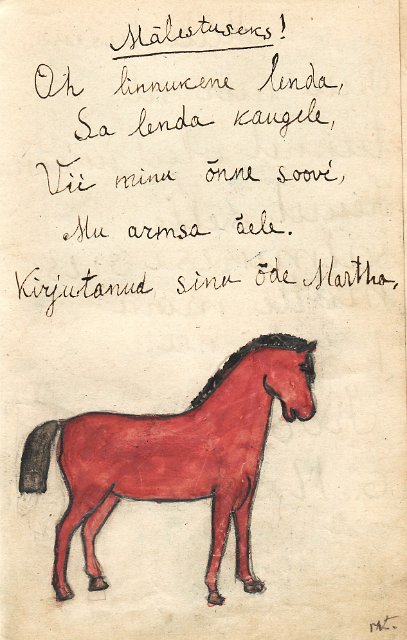 Mälestuseks!
Oh linnukene lenda,
Sa lenda kaugele,
Vii minu õnne soovi,
Mu armsa äele.
Kirjutanud sinu õde Martha,